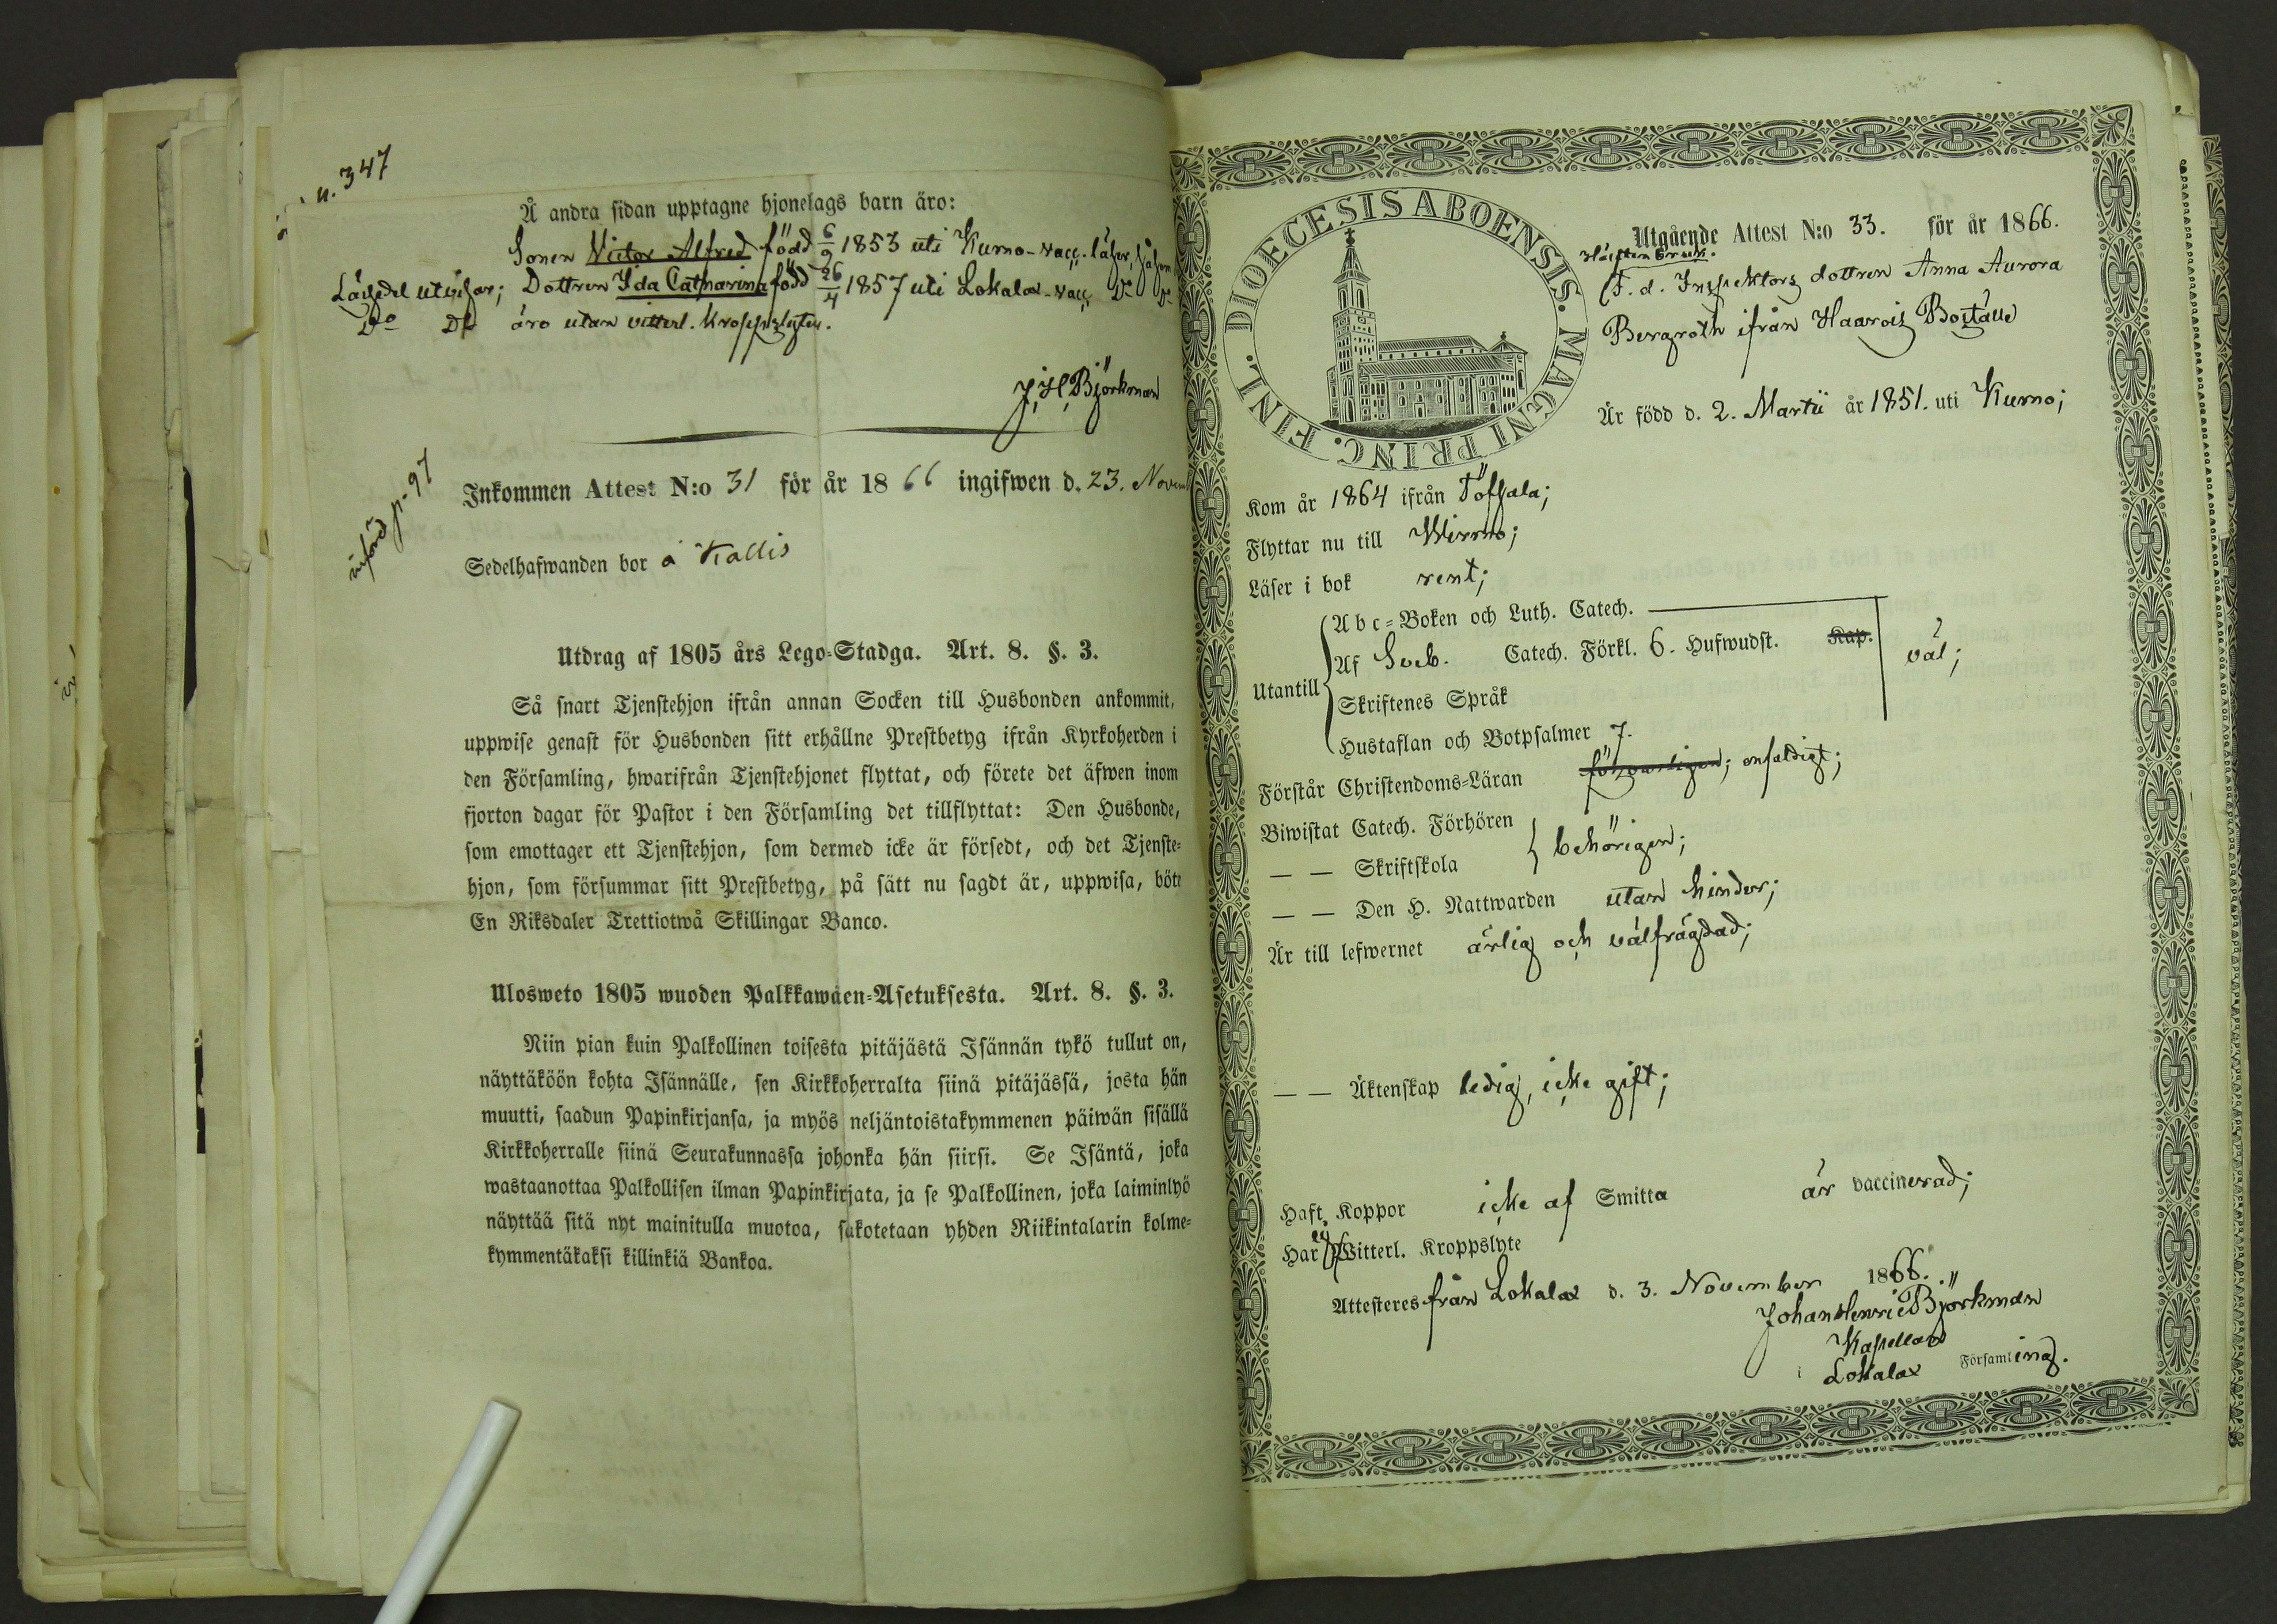 n. 347
Å andra sidan upptagne hjonelags barn äro:
Sonen Victor Alfred född 6/9 1853 uti Kumo - vacc. läser, såsom
Läsedel utvisar; Dottren Ida Catharina född 26/4 1857 uti Lokalax - vacc. Do Do
Do Do äro utan vitterl. Kroppslyten.
J. H. Björkman
införd p. 97
Inkommen Attest N:o 31 för år 1866 ingifwen d. 23. Novemb
Sedelhafwanden bor å Kallis
Utdrag af 1805 års Lego-Stadga. Art. 8. §. 3.
Så snart Tjenstehjon ifrån annan Socken till Husbonden ankommit,
uppwise genast för Husbonden sitt erhållne Prestbetyg ifrån Kyrkoherden i
den Församling, hwarifrån Tjenstehjonet flyttat, och förete det äfwen inom
fjorton dagar för Pastor i den Församling det tillflyttat: Den Husbonde,
som emottager ett Tjenstehjon, som dermed icke är försedt, och det Tjenste-
hjon, som försummar sitt Prestbetyg, på sätt nu sagdt är, uppwisa, böte
En Riksdaler Trettiotwå Skillingar Banco.
Ulosweto 1805 wuoden Palkkawäen-Asetuksesta. Art. 8. §. 3.
Niin pian kuin Palkollinen toisesta pitäjästä Isännän tykö tullut on,
näyttäköön kohta Isännälle, sen Kirkkoherralta siinä pitäjässä, josta hän
muutti, saadun Papinkirjansa, ja myös neljäntoistakymmenen päiwän sisällä
Kirkkoherralle siinä Seurakunnassa johonka hän siirsi. Se Isäntä, joka
wastaanottaa Palkollisen ilman Papinkirjata, ja se Palkollinen, joka laiminlyö
näyttää sitä nyt mainitulla muotoa, sakotetaan yhden Riikintalarin kolme-
kymmentäkaksi killinkiä Bankoa.
DIOECESIS ABOENSIS. MAGNI PRINC. FINL.
Utgående Attest N:o 33. för år 1866.
F. d. Inspektors dottren Anna Aurora
Bergroth ifrån Haarois Boställe
Är född d. 2. Martii år 1851. uti Kumo;
Kom år 1864 ifrån Töfsala;
Flyttar nu till Wirmo;
Läser i bok rent;
Utantill
Abc-Boken och Luth. Catech.
Af Sveb. Catech. Förkl. 6. Hufwudst. Kap. väl;
Skriftenes Språk
Hustaflan och Botpsalmer 7.
Förstår Christendoms-Läran försvarligen; enfaldigt;
Biwistat Catech. Förhören
— — Skriftskola behörigen;
— — Den H. Nattwarden utan hinder;
Är till lefwernet ärlig och välfrägdad;
— — Äktenskap ledig, icke gift;
Haft Koppor icke af Smitta är vaccinerad;
Har ej Witterl. Kroppslyte
Attesteres från Lokalax d. 3. November 1866.
Johan Henric Björkman
Kapellan
i Lokalax Församling.